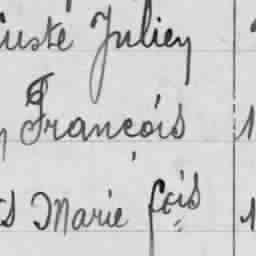 uste Julien
François 1
s Marie fçois 1